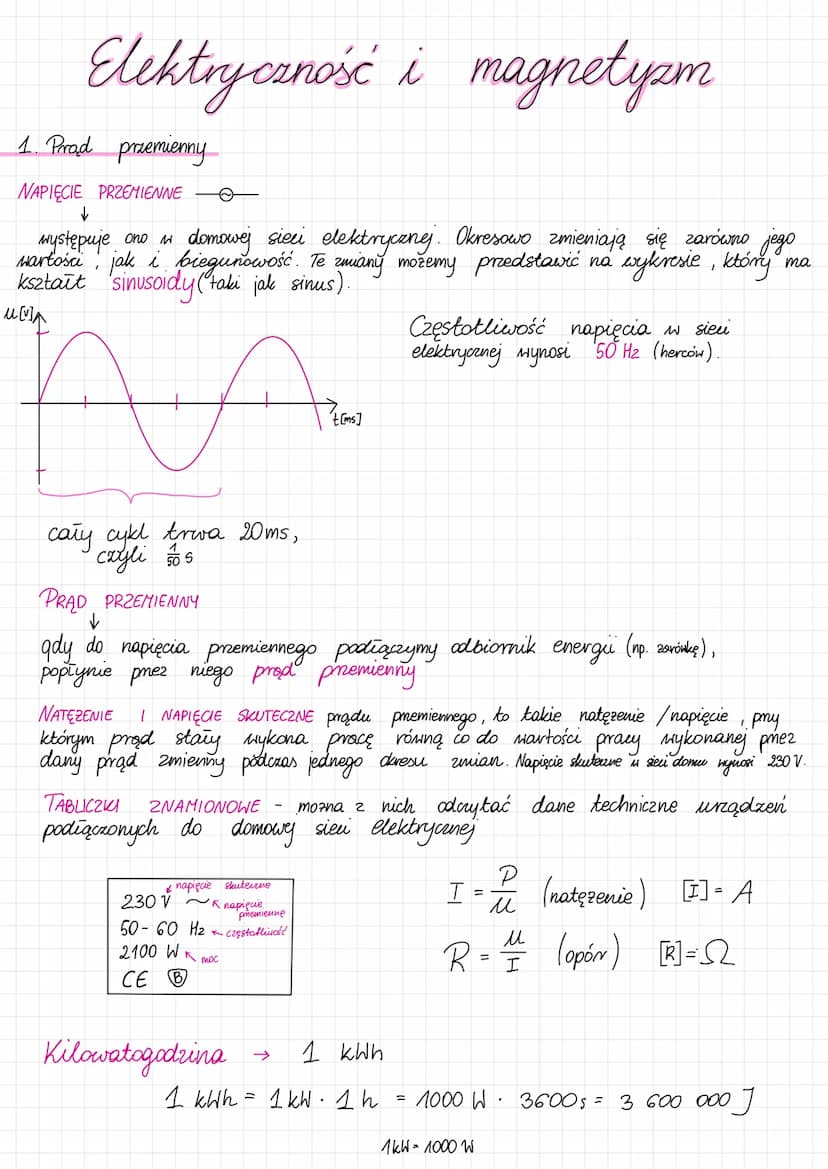 Elektryczność i magnetyzm
1. Prąd przemienny
NAPIĘCIE PRZEMIENNE
występuje ono w domowej sieci elektrycznej. Okresowo zmieniają się zarówno jego
wartości, jak i biegunowość. Te zmiany możemy przedstawić na wykresie, który ma
kształt sinusoidy (taki jak sinus).
U [V]
Częstotliwość napięcia w sieci
elektrycznej wynosi 50 Hz (herców).
t [ms]
cały cykl trwa 20 ms,
czyli 1/50 s
PRĄD PRZEMIENNY
gdy do napięcia przemiennego podłączymy odbiornik energii (np. żarówkę),
popłynie przez niego prąd przemienny
NATĘŻENIE I NAPIĘCIE SKUTECZNE prądu przemiennego, to takie natężenie / napięcie, przy
którym prąd stały wykona pracę równą co do wartości pracy wykonanej przez
dany prąd zmienny podczas jednego okresu zmian. Napięcie skuteczne w sieci domu wynosi 230 V.
TABLICZKI ZNAMIONOWE - można z nich odczytać dane techniczne urządzeń
podłączonych do domowej sieci elektrycznej
napięcie skuteczne
230 V ~ napięcie przemienne
50 - 60 Hz częstotliwość
2100 W moc
CE B
I = P/U (natężenie) [I] = A
R = U/I (opór) [R] = Ω
Kilowatogodzina → 1 kWh
1 kWh = 1 kW · 1 h = 1000 W · 3600 s = 3 600 000 J
1 kW = 1000 W